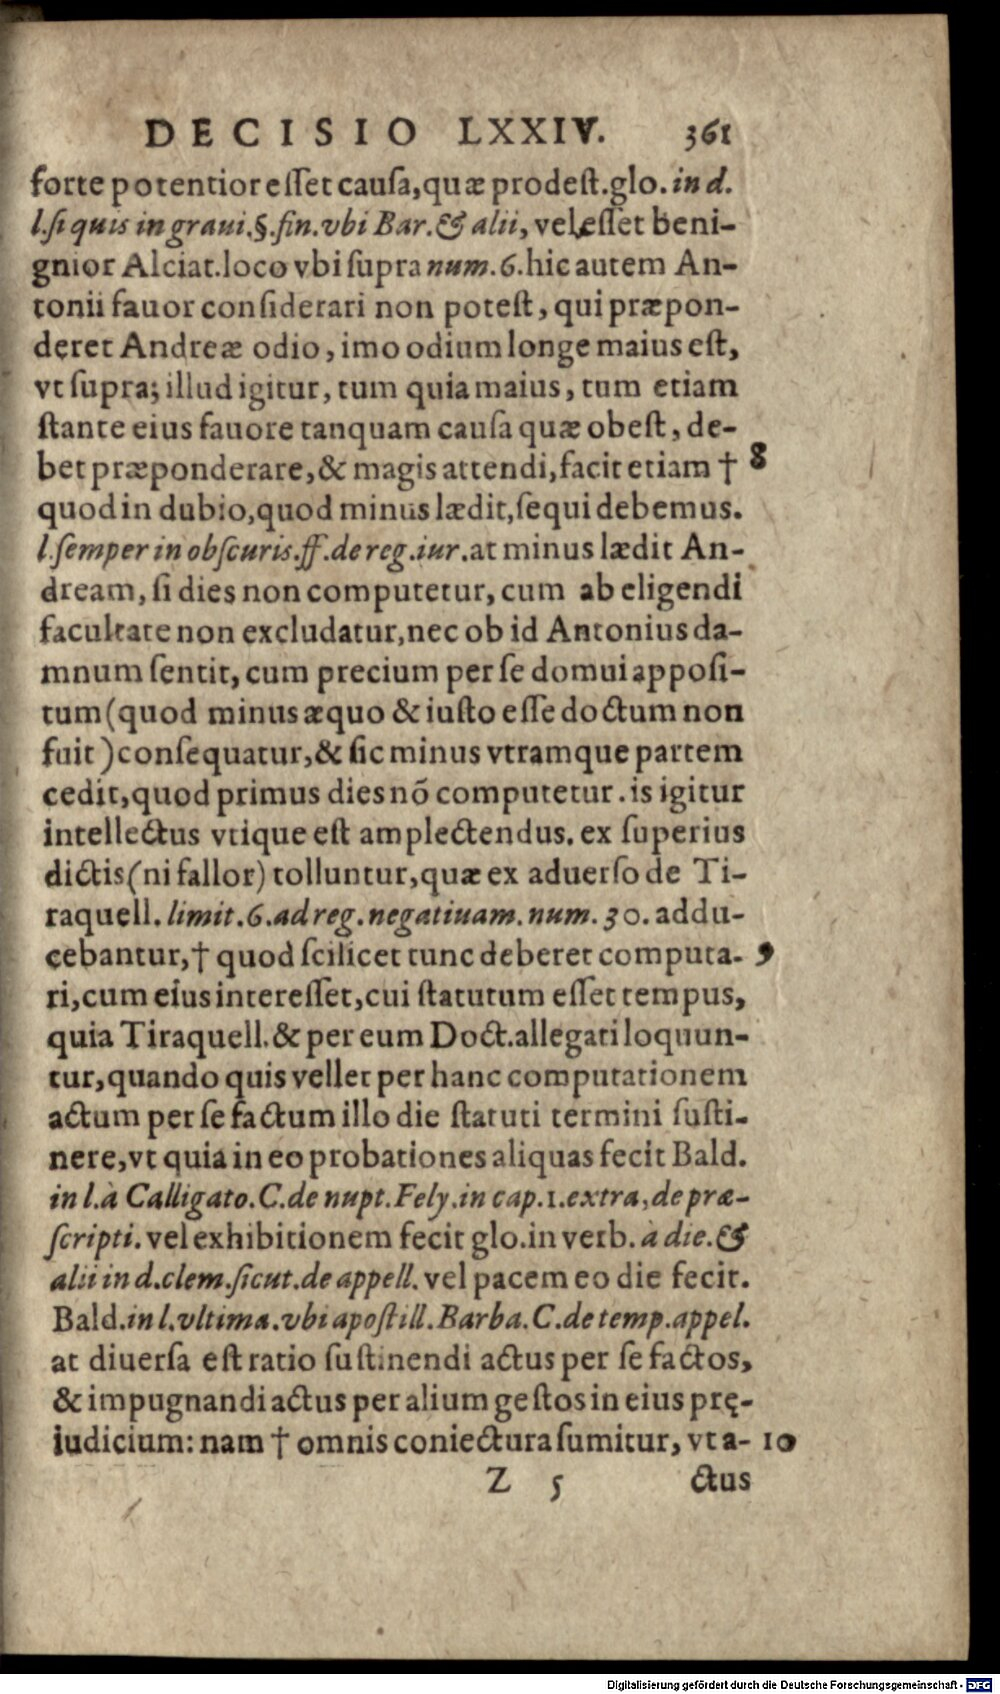 DECISIO LXXIV. 361
forte potentior esset causa, quæ prodest. glo. in d.
l. si quis in graui. §. fin. vbi Bar. & alii, vel esset beni-
gnior Alciat. loco vbi supra num. 6. hic autem An-
tonii fauor considerari non potest, qui præpon-
deret Andreæ odio, imo odium longe maius est,
vt supra; illud igitur, tum quia maius, tum etiam
stante eius fauore tanquam causa quæ obest, de-
bet præponderare, & magis attendi, facit etiam † 8
quod in dubio, quod minus lædit, sequi debemus.
l. semper in obscuris. ff. de reg. iur. at minus lædit An-
dream, si dies non computetur, cum ab eligendi
facultate non excludatur, nec ob id Antonius da-
mnum sentit, cum precium per se domui apposi-
tum (quod minus æquo & iusto esse doctum non
fuit) consequatur, & sic minus vtramque partem
cedit, quod primus dies nō computetur. is igitur
intellectus vtique est amplectendus. ex superius
dictis (ni fallor) tolluntur, quæ ex aduerso de Ti-
raquell. limit. 6. ad reg. negatiuam. num. 30. addu-
cebantur, † quod scilicet tunc deberet computa- 9
ri, cum eius interesset, cui statutum esset tempus,
quia Tiraquell. & per eum Doct. allegati loquun-
tur, quando quis vellet per hanc computationem
actum per se factum illo die statuti termini susti-
nere, vt quia in eo probationes aliquas fecit Bald.
in l. à Calligato. C. de nupt. Fely. in cap. 1. extra, de præ-
scripti. vel exhibitionem fecit glo. in verb. à die. &
alii in d. clem. sicut. de appell. vel pacem eo die fecit.
Bald. in l. vltima. vbi apostill. Barba. C. de temp. appel.
at diuersa est ratio sustinendi actus per se factos,
& impugnandi actus per alium gestos in eius prę-
iudicium: nam † omnis coniectura sumitur, vt a- 10
Z 5 ctus
Digitalisierung gefördert durch die Deutsche Forschungsgemeinschaft - DFG